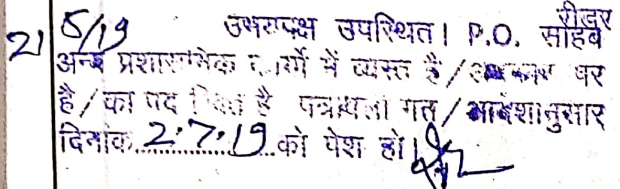 21/5/19 उभयपक्ष उपस्थित। P.O. साहब रीडर
अन्य प्रशासनिक कार्यों में व्यस्त है / अवकाश पर
है / का पद रिक्त है पत्रावली गत / आदेशानुसार
दिनांक 2.7.19 को पेश हो।